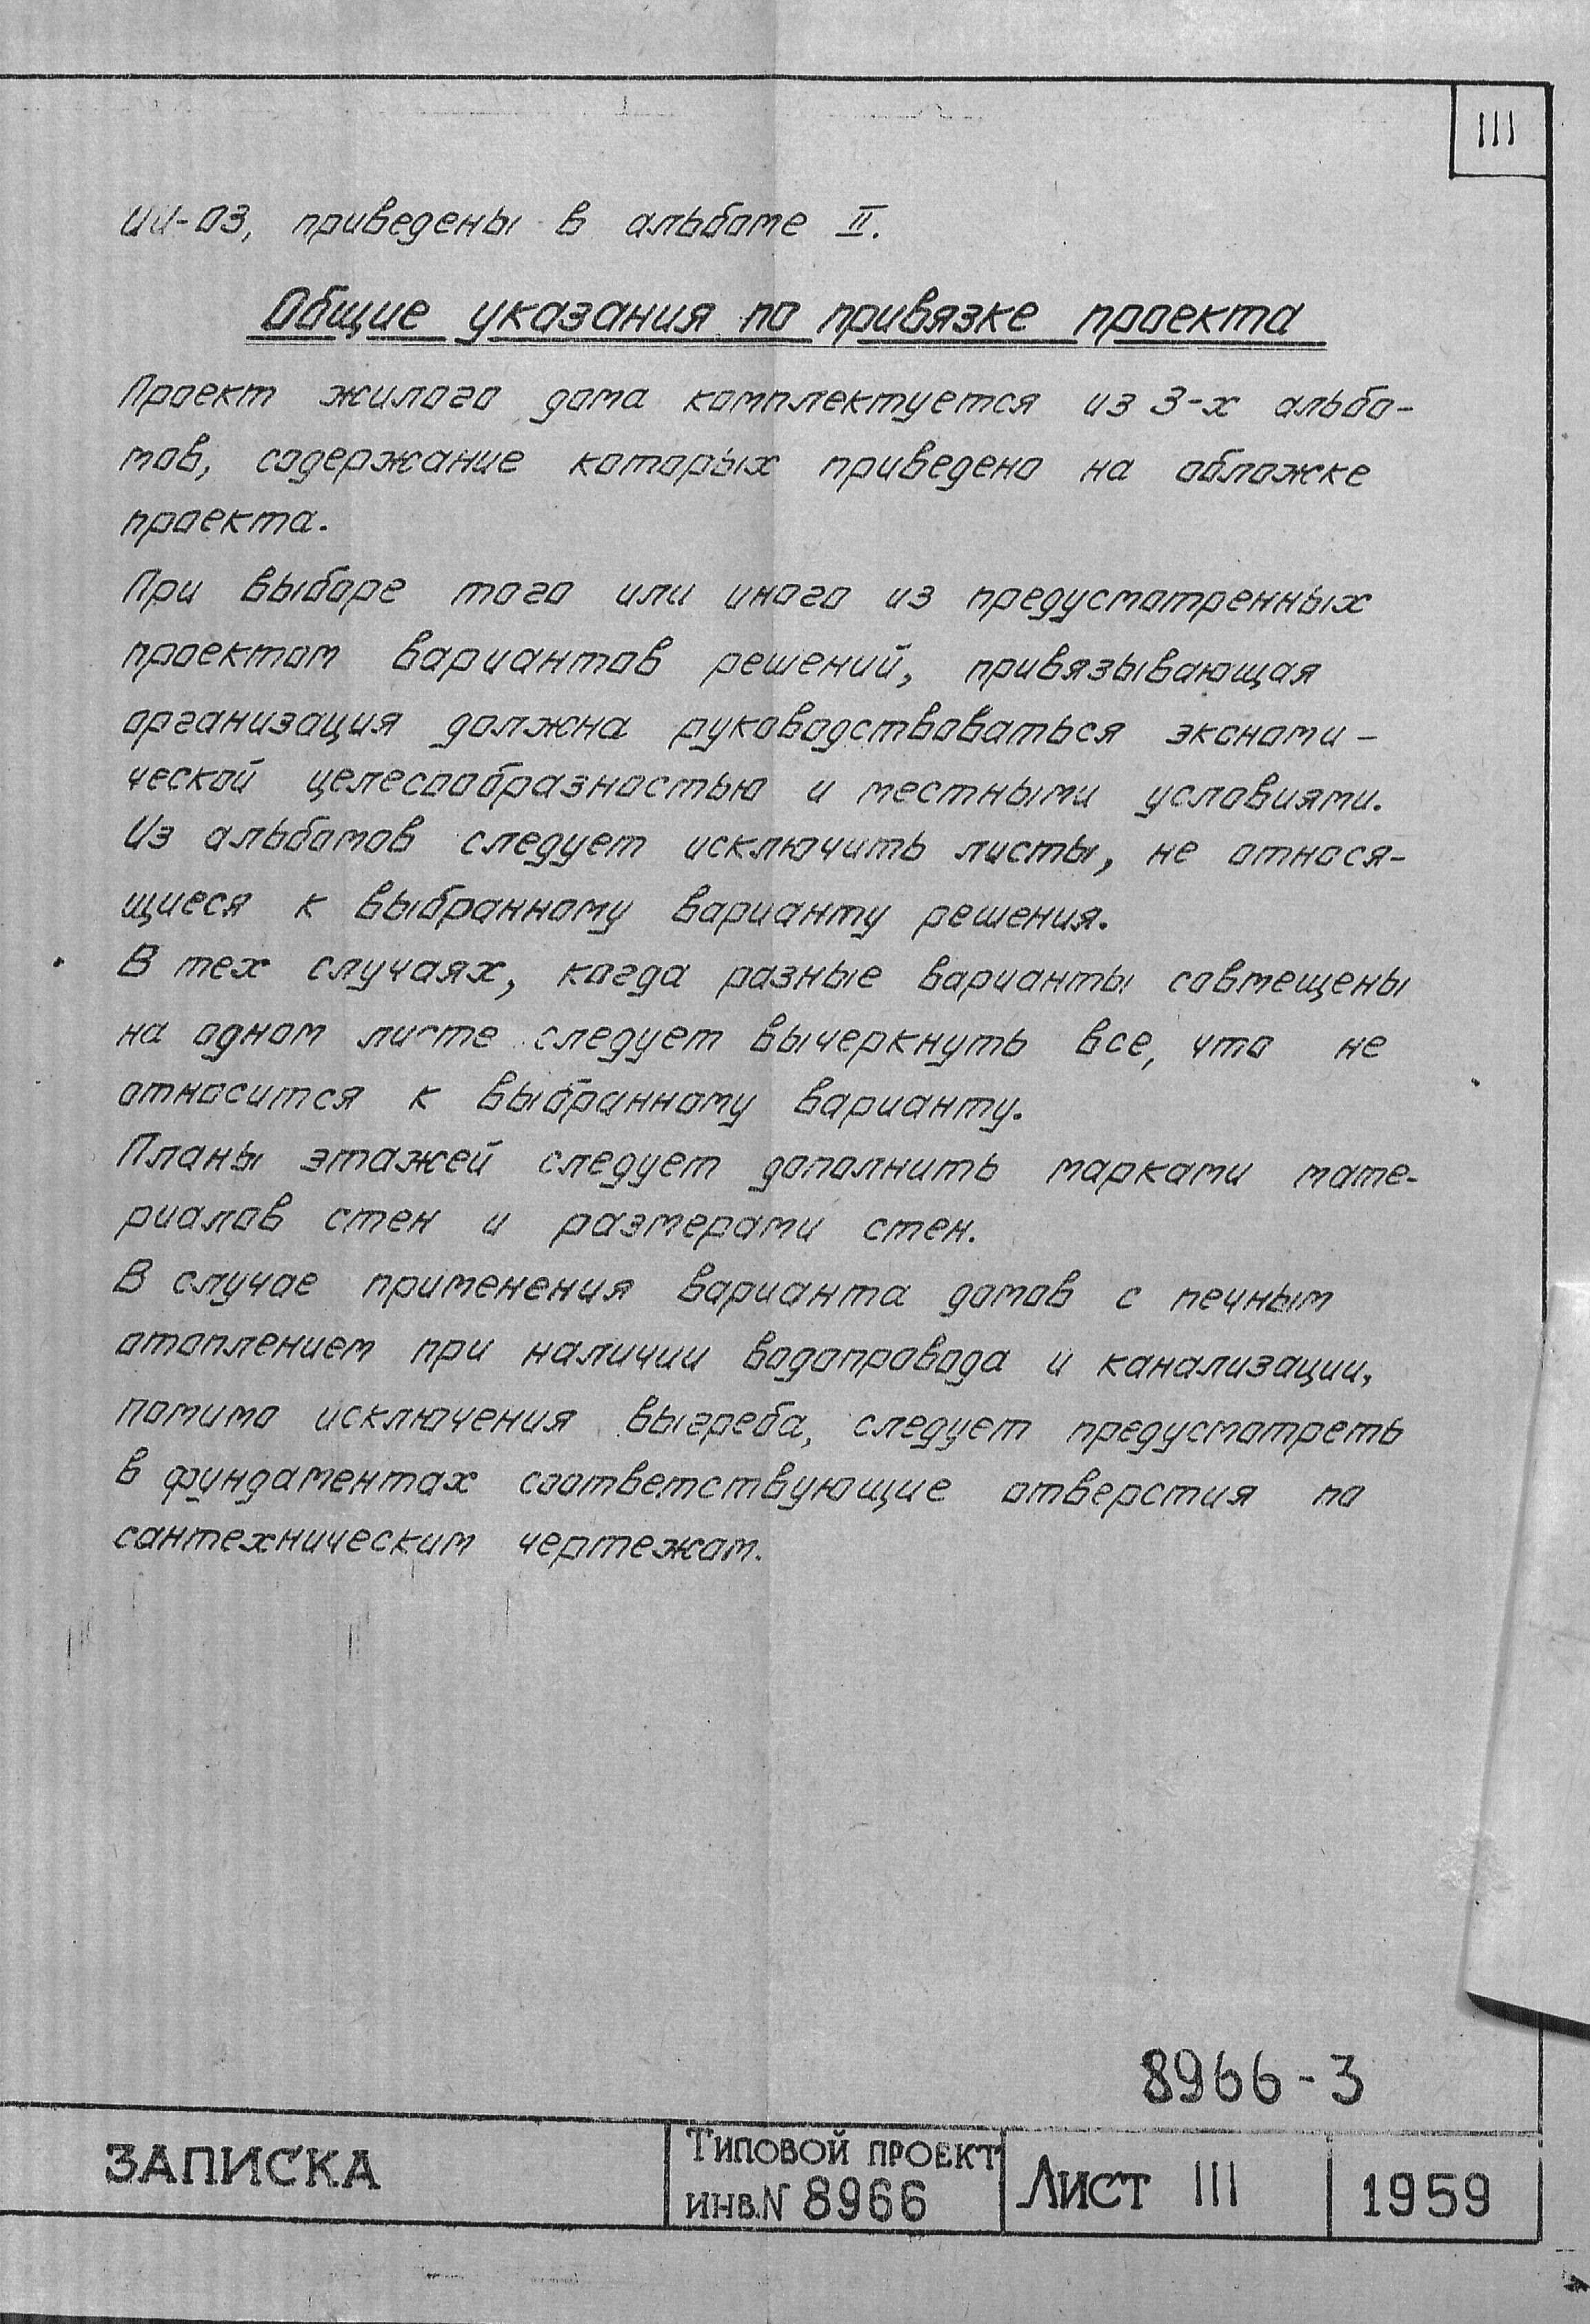 III
ИИ-03, приведены в альбоме II.
Общие указания по привязке проекта
Проект жилого дома комплектуется из 3-х альбо-
мов, содержание которых приведено на обложке
проекта.
При выборе того или иного из предусмотренных
проектом вариантов решений, привязывающая
организация должна руководствоваться экономи-
ческой целесообразностью и местными условиями.
Из альбомов следует исключить листы, не относя-
щиеся к выбранному варианту решения.
В тех случаях, когда разные варианты совмещены
на одном листе следует вычеркнуть все, что не
относится к выбранному варианту.
Планы этажей следует дополнить марками мате-
риалов стен и размерами стен.
В случае применения варианта домов с печным
отоплением при наличии водопровода и канализации,
помимо исключения выгреба, следует предусмотреть
в фундаментах соответствующие отверстия по
сантехническим чертежам.
8966-3
ЗАПИСКА
Типовой проект
инв.N 8966
Лист III
1959